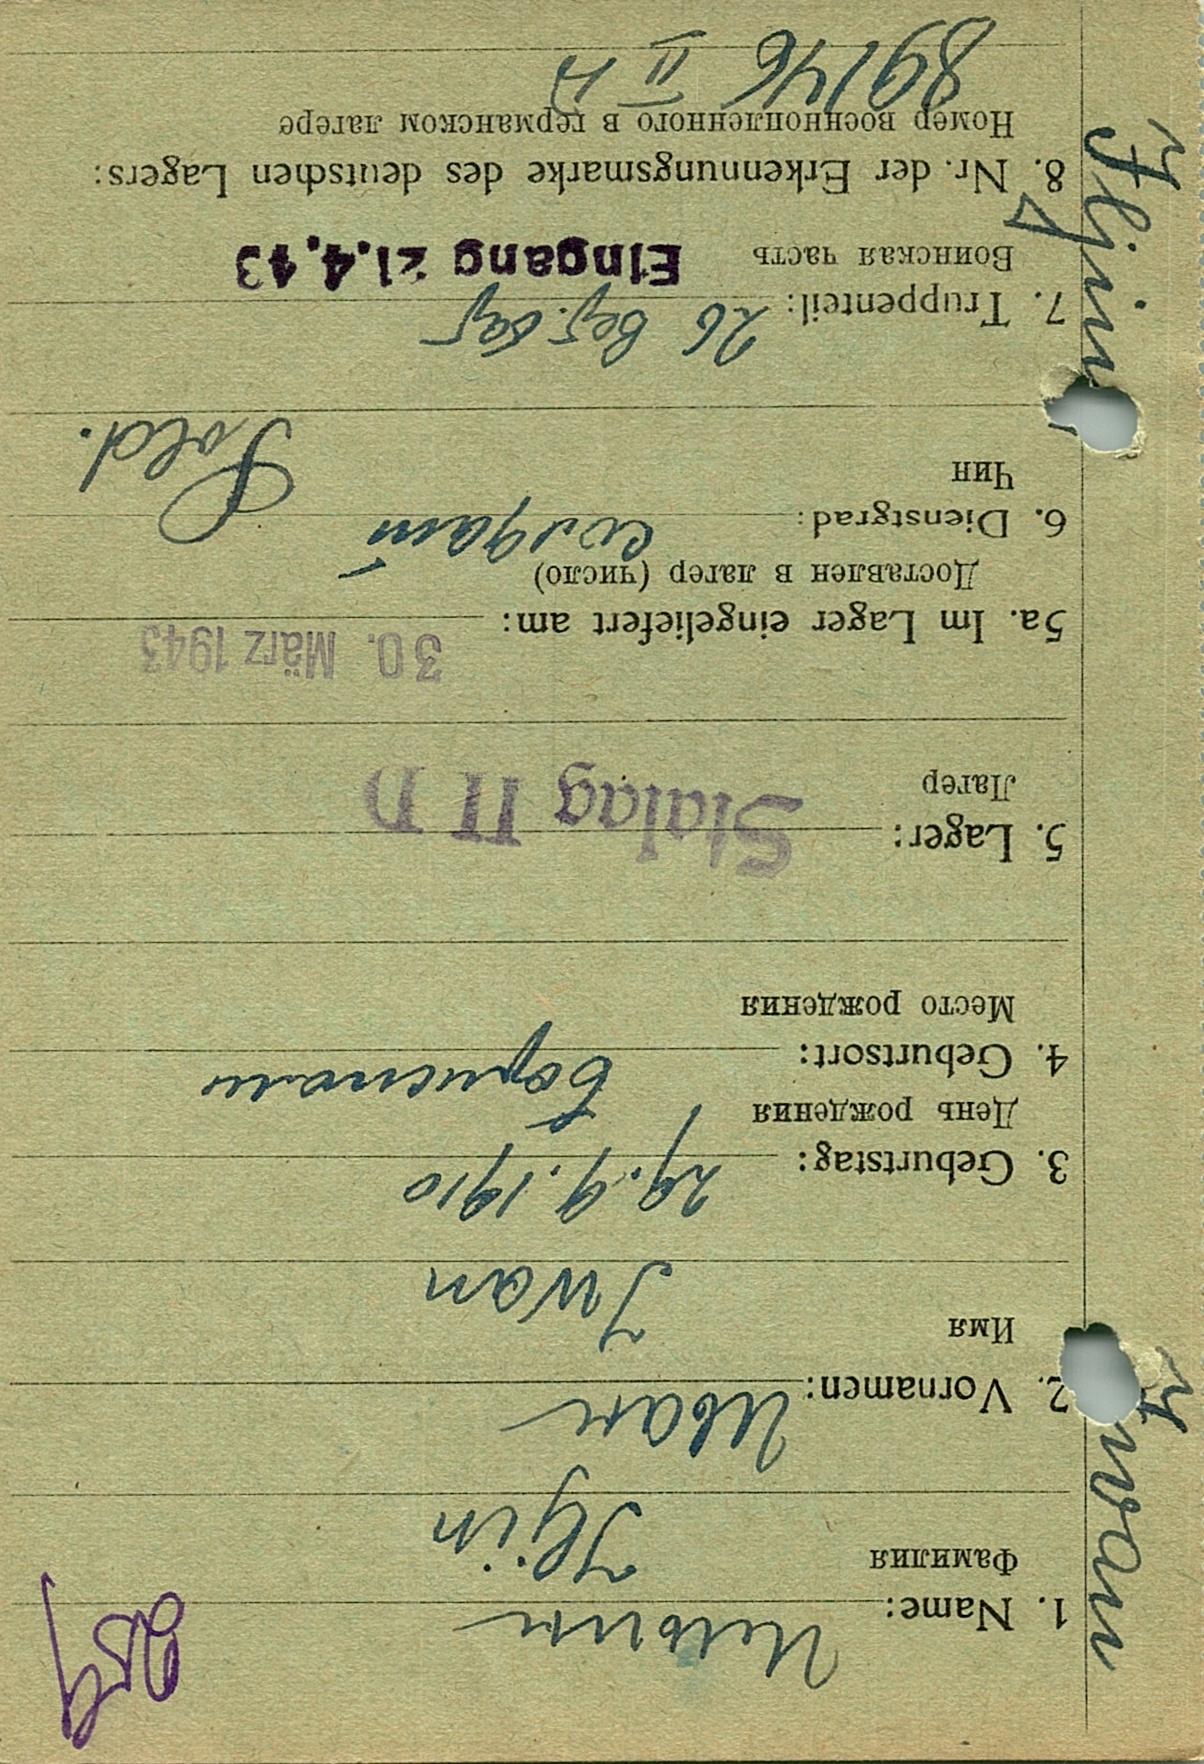 1. Name: Ильин
Фамилия Iljin
2. Vornamen: Иван
Имя Iwan
3. Geburtstag: 29.9.1910
День рождения
4. Geburtsort:
Место рождения
5. Lager: Stalag II D
Лагер
5a. Im Lager eingeliefert am: 30. März 1943
Доставлен в лагер (число)
6. Dienstgrad: солдат Sold.
Чин
7. Truppenteil: 26
Воинская часть Eingang 21.4.43
8. Nr. der Erkennungsmarke des deutschen Lagers:
Номер военнопленного в германском лагере
89146 II
Iljin Iwan